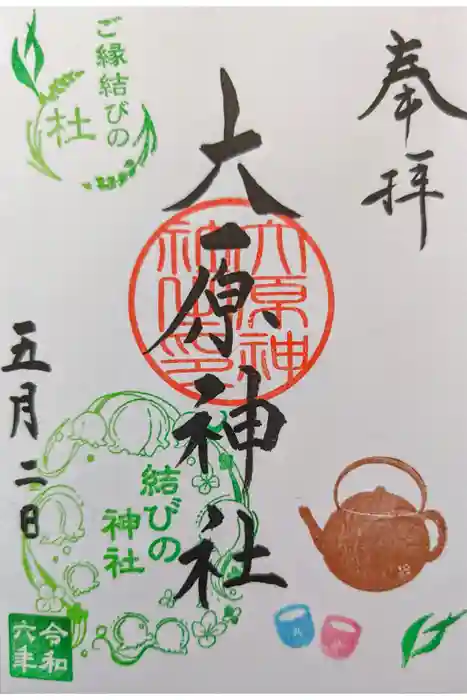 奉拝
大原神社
大原神社印
ご縁結びの
杜
結びの
神社
五月二日
令和
六年